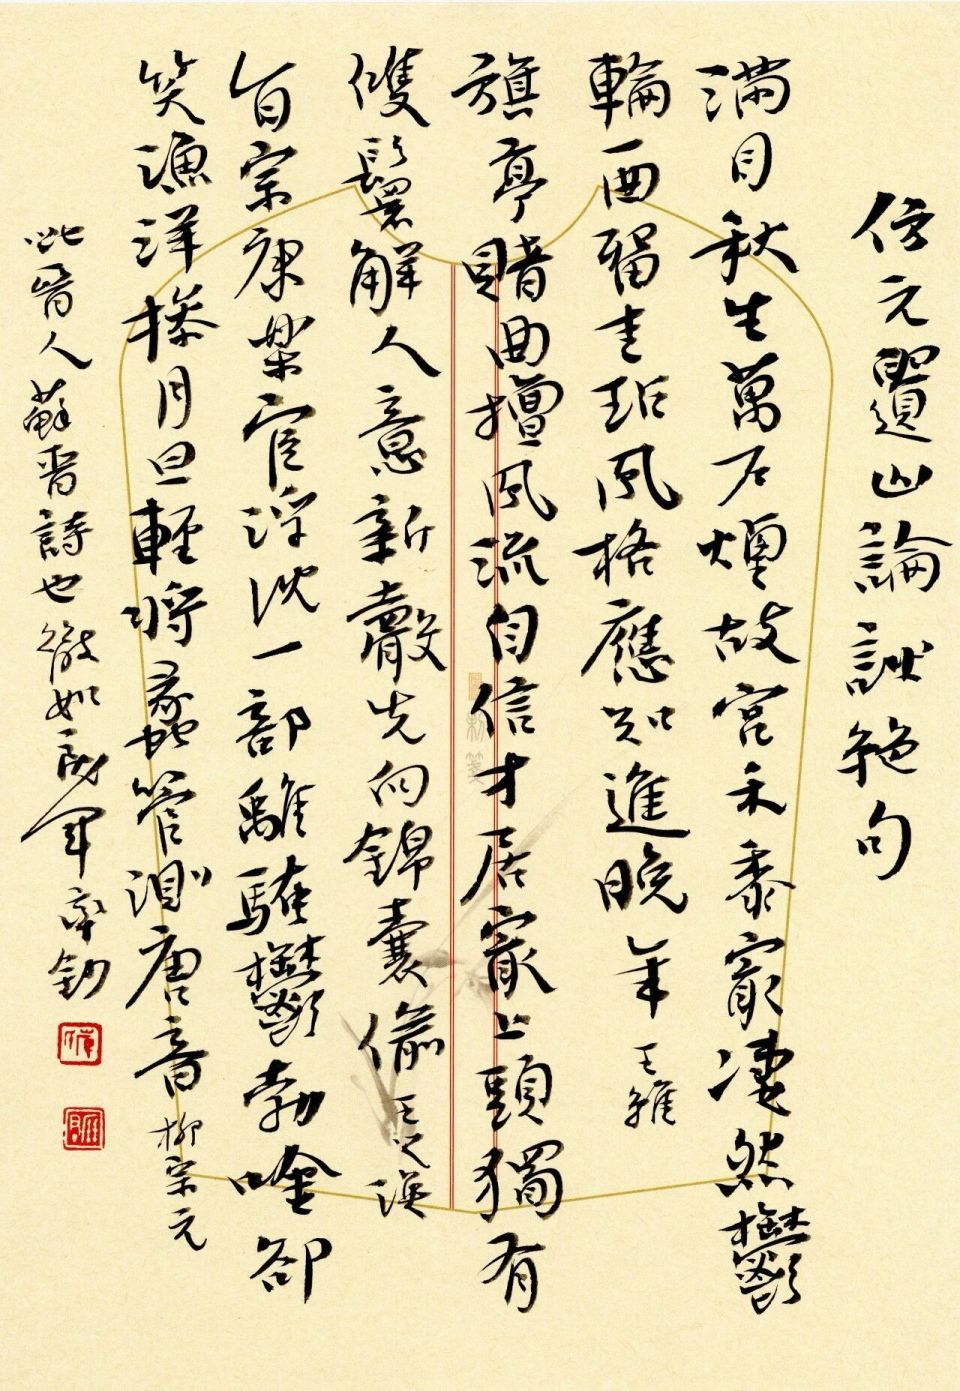 仿元遺山論詩絕句
滿目秋生萬戶煙故宮禾黍冣淒然鬱
輪一曲留圭玷風格應知進晚年 王維
旗亭賭曲擅風流自信才居冣上頭獨有
雙鬟解人意新聲先向錦囊偷 王之渙
旨宗康樂宦浮沈一部離騷鬱勃吟卻
笑漁洋操月旦輕將蠡管測唐音 柳宗元
此晉人蘇晉詩也